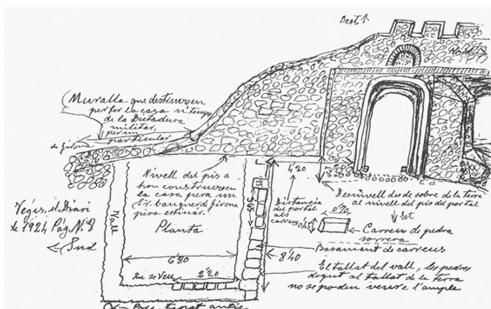 Oest
Nord
Muralla que destruiren
per fer la casa n'temps
de la Dictadura
militar,
particular
de Girona
Nivell del pis a
hon construiren
la casa pera un
Sr. banquer de Girona
pera estiuar.
Planta
Vegis, el Diari
de 1924 Pág. Nº 8
Sud
Mur
6'80
2'20
4'20
8'40
Distancia
del portal
als
carreus
Desnivell des de sobre de la terra
al nivell del pis del portal
Est
0'70
Carreu de pedra
sorrera
Basament de carreus
El tallat del vall, les pedres
degut al tallat de la terra
no se poden veure l'ample